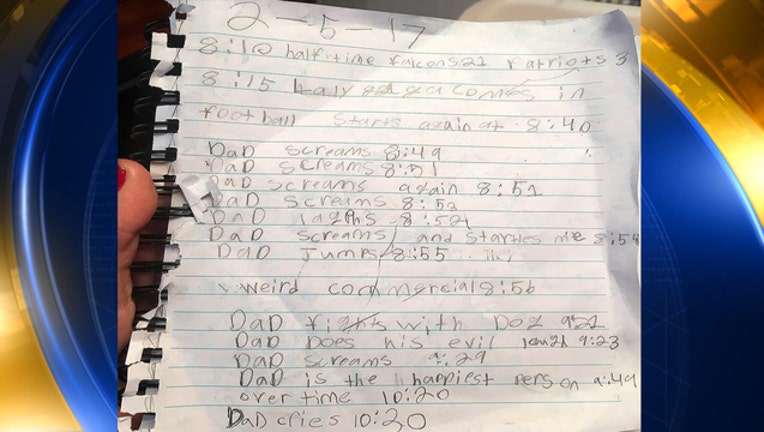 2-5-17
8:10 half-time falcons 21 Patriots 3
8:15 Lady gaga comes in
football starts again at 8:40
DaD screams 8:49
DaD screams 8:51
DaD screams again 8:51
DaD screams 8:53
DaD laghs 8:54
DaD screams and startles me 8:54
DaD Jumps 8:55
weird commercial 8:56
DaD fights with Dog 9:21
DaD Does his evil 9:23
DaD screams 9:29
DaD is the happiest person 9:49
over time 10:20
DaD cries 10:30